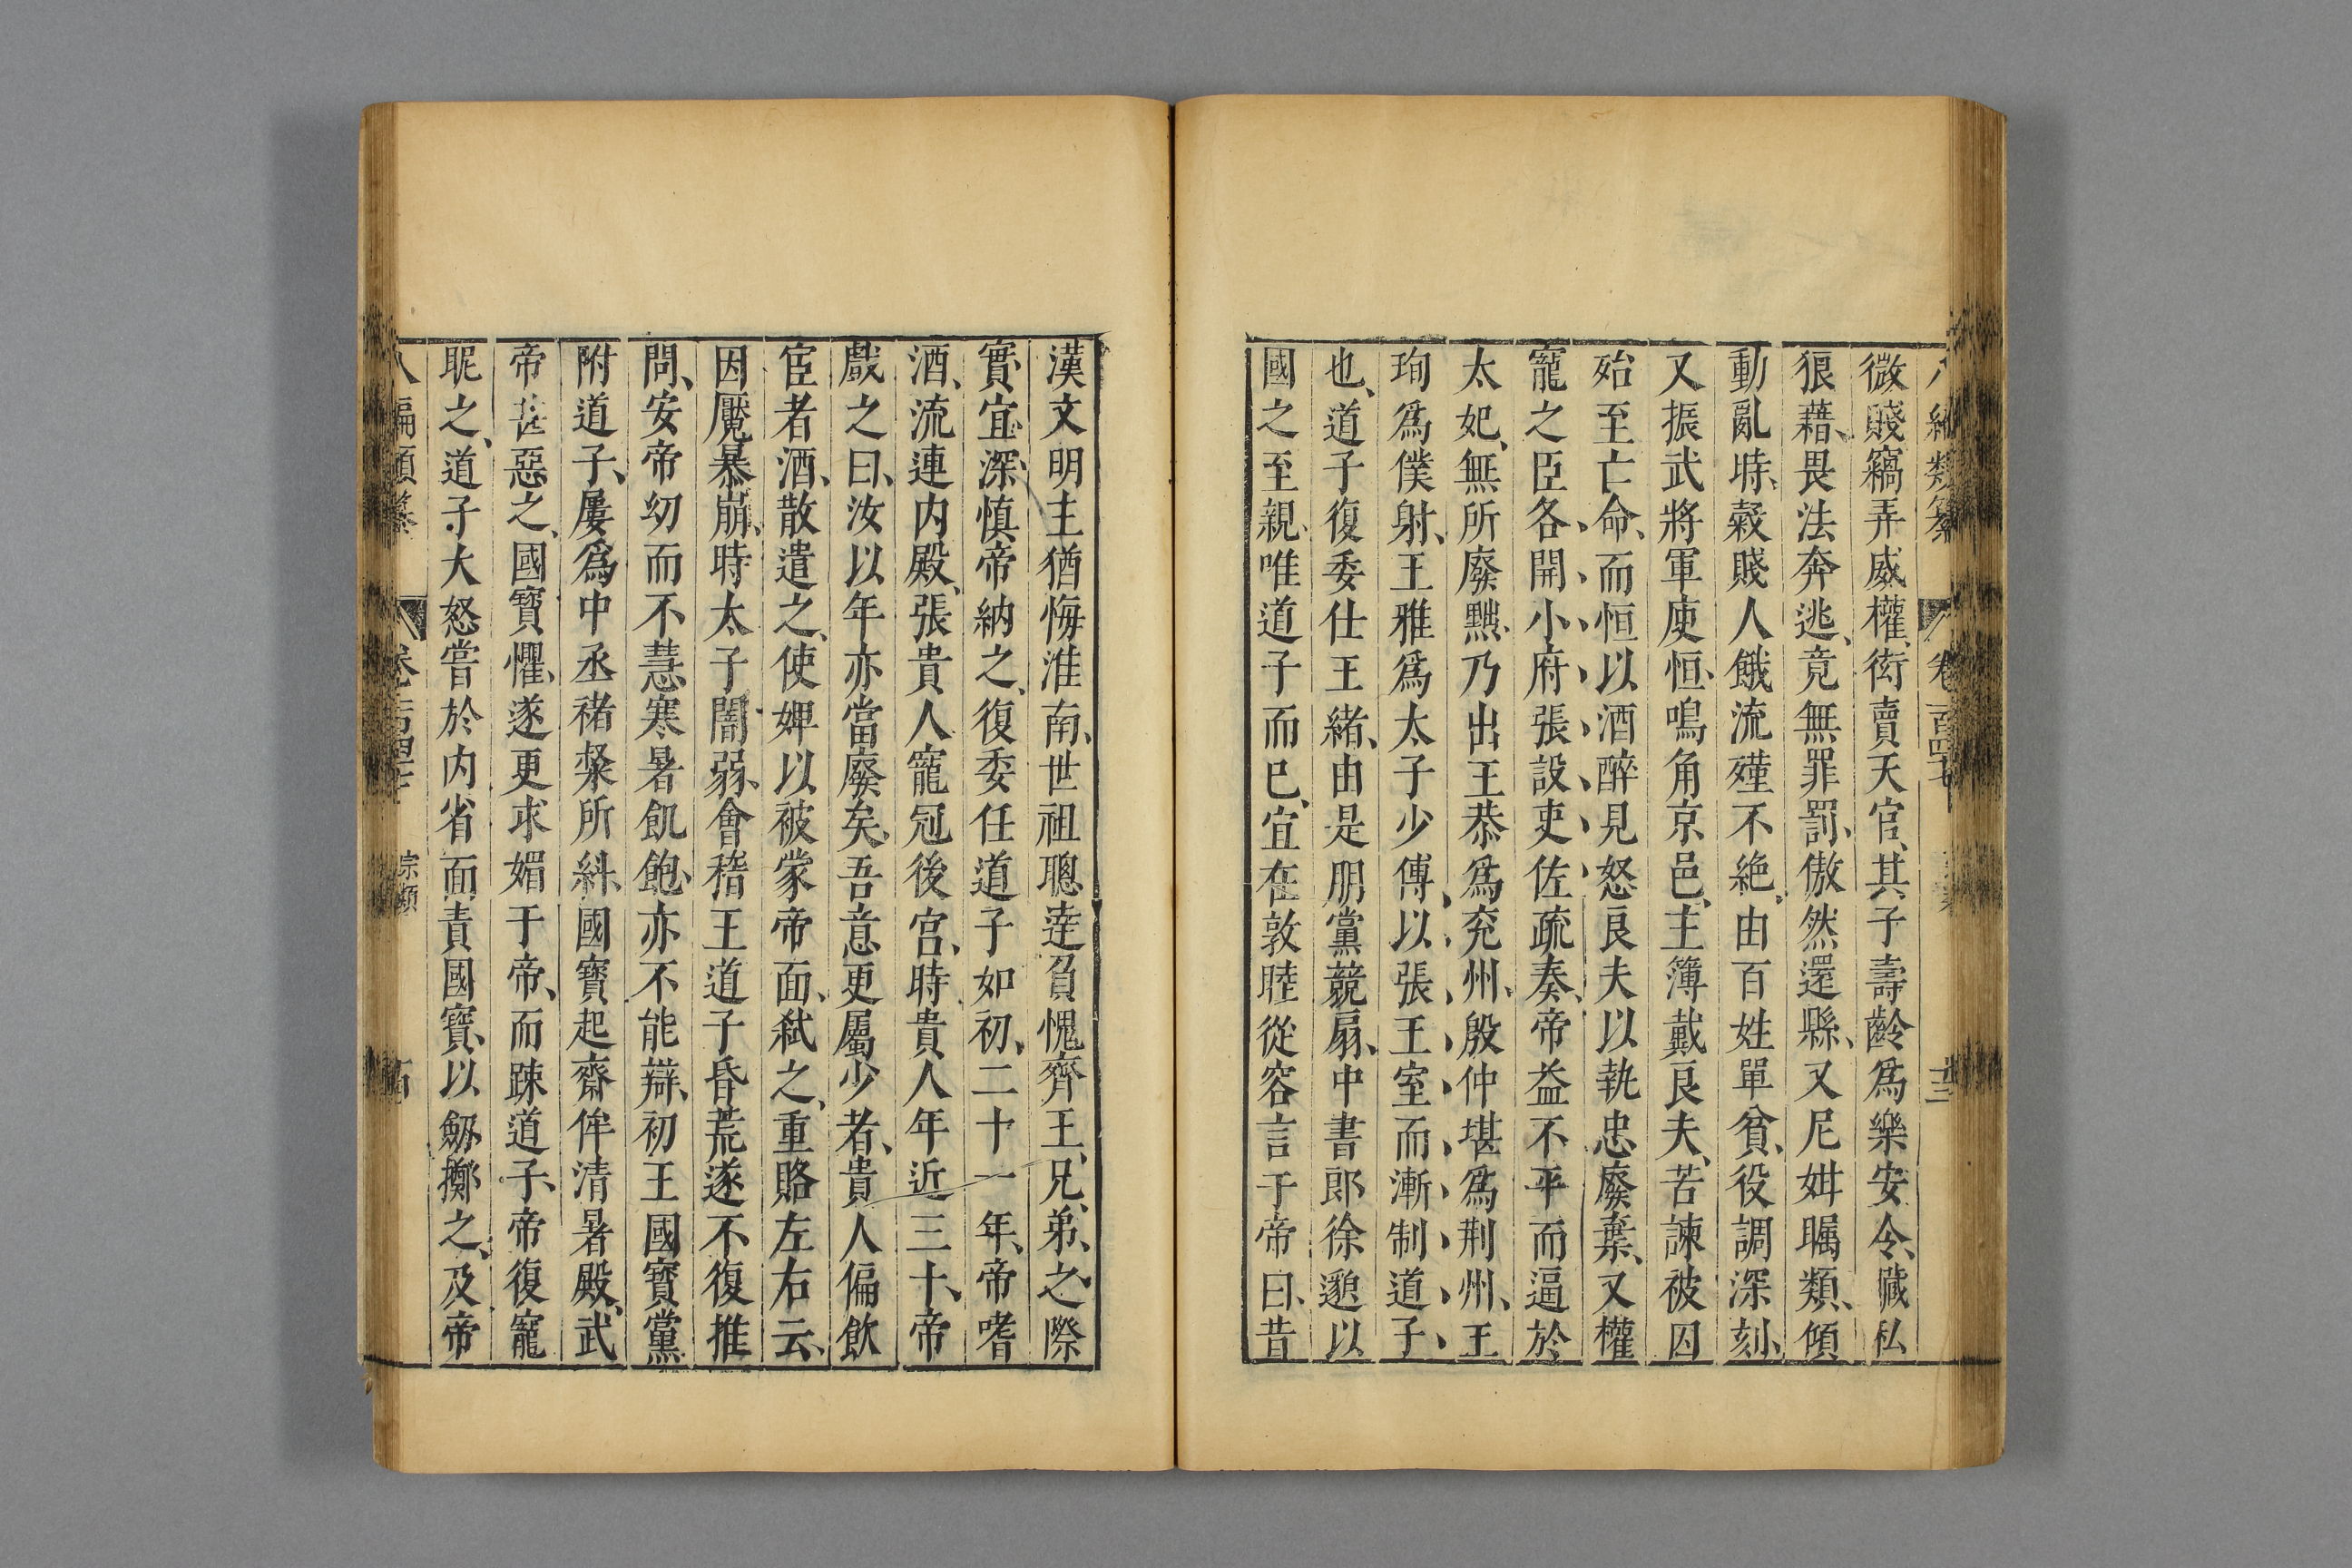 八編類纂 卷一百四十七 十三
微賤竊弄威權衒賣天官其子壽齡爲樂安令臧私
狼藉畏法奔逃竟無罪罰傲然還縣又尼姏矚類傾
動亂時穀賤人餓流殣不絶由百姓單貧役調深刻
又振武將軍庾恒鳴角京邑主簿戴良夫苦諫被囚
殆至亡命而恒以酒醉見怒良夫以執忠廢棄又權
寵之臣各開小府張設吏佐疏奏帝益不平而逼於
太妃無所廢黜乃出王恭爲兖州殷仲堪爲荆州王
珣爲僕射王雅爲太子少傅以張王室而漸制道子
也道子復委仕王緒由是朋黨競扇中書郎徐邈以
國之至親唯道子而已宜在敦睦從容言于帝曰昔
漢文明主猶悔淮南世祖聰達負愧齊王兄弟之際
實宜深慎帝納之復委任道子如初二十一年帝嗜
酒流連内殿張貴人寵冠後宫時貴人年近三十帝
戲之曰汝以年亦當廢矣吾意更屬少者貴人偏飲
宦者酒散遣之使婢以被蒙帝面弑之重賂左右云
因魘暴崩時太子闇弱會稽王道子昏荒遂不復推
問安帝幼而不慧寒暑飢飽亦不能辯初王國寶黨
附道子屢爲中丞褚粲所糾國寶起齋侔清暑殿武
帝甚惡之國寶懼遂更求媚于帝而踈道子帝復寵
昵之道子大怒嘗於内省面責國寶以劔擲之及帝
八編類纂 卷一百四十七 宗類 十四